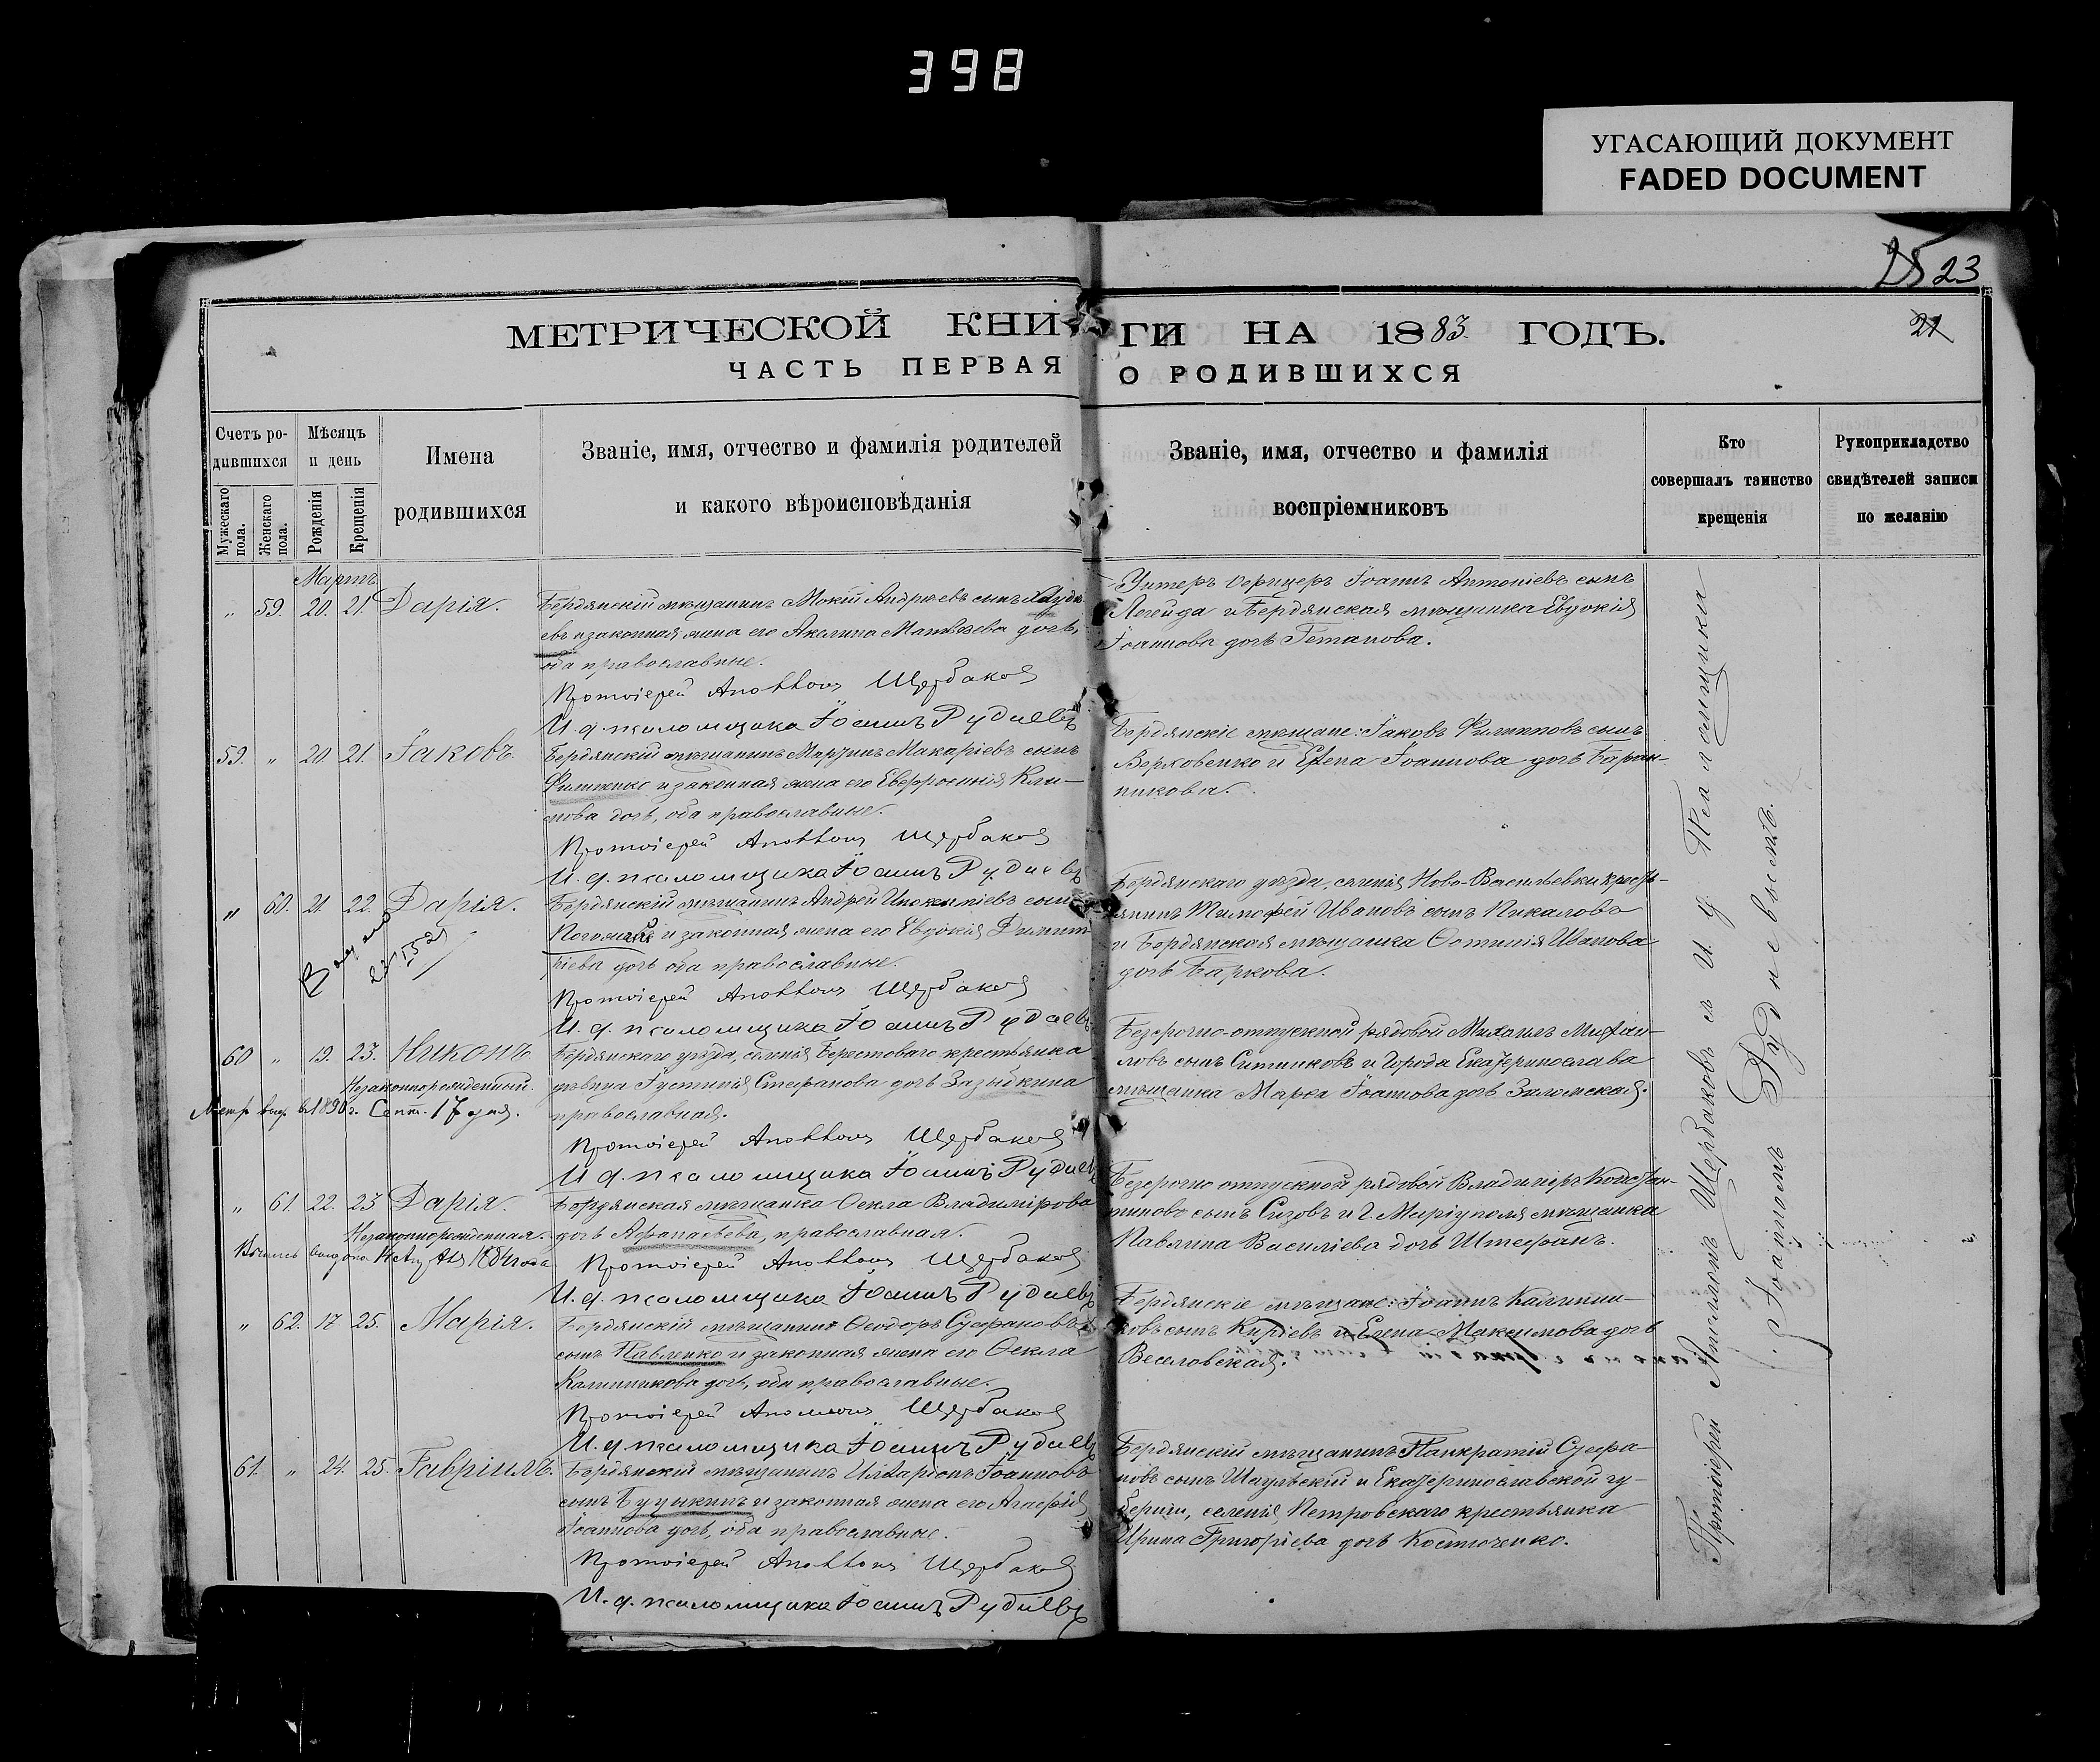 398
УГАСАЮЩИЙ ДОКУМЕНТ
FADED DOCUMENT
25 23
21
МЕТРИЧЕСКОЙ КНИГИ НА 1883 ГОДЪ.
ЧАСТЬ ПЕРВАЯ О РОДИВШИХСЯ
Счетъ ро-
дившихся
Мужескаго пола.
Женскаго пола.
Мѣсяцъ
и день
Рожденія
Крещенія
Имена
родившихся
Званіе, имя, отчество и фамилія родителей
и какого вѣроисповѣданія
Званіе, имя, отчество и фамилія
воспріемниковъ
Кто
совершалъ таинство
крещенія
Рукоприкладство
свидѣтелей записи
по желанію
Мартъ
" 59 20. 21. Дарія.
Бердянскій мѣщанинъ Мокій Андреевъ сынъ
евъ и законная жена его Акелина Матвѣева дочь,
оба православные.
Протоіерей Аполлонъ Щербаковъ
И. д. псаломщика Іоаннъ Рудневъ
Унтеръ офицеръ Іоаннъ Антоніевъ сынъ
Легейда и Бердянская мѣщанка Евдокія
Іоаннова дочь Гетанова.
59. " 20. 21. Іаковъ.
Бердянскій мѣщанинъ Мартинъ Макаріевъ сынъ
Филипенко и законная жена его Евфросинія Кли-
мова дочь, оба православные.
Протоіерей Аполлонъ Щербаковъ
И. д. псаломщика Іоаннъ Рудневъ
Бердянскіе мѣщане: Іаковъ Филипповъ сынъ
Верховенко и Елена Іоаннова дочь Баран-
никова.
" 60. 21. 22. Дарія.
Бердянскій мѣщанинъ Андрей Инокентіевъ сынъ
и законная жена его Евдокія Димит-
ріева дочь оба православные.
Протоіерей Аполлонъ Щербаковъ
И. д. псаломщика Іоаннъ Рудневъ
Бердянскаго уѣзда, селенія Ново-Васильевки кресть-
янинъ Тимофей Ивановъ сынъ Пикаловъ
и Бердянская мѣщанка Устинія Иванова
дочь Баркова.
60 " 19. 23. Никонъ.
Незаконнорожденный.
Метр. выд. въ 1890 г. Сент. 17 дня.
Бердянскаго уѣзда, селенія Берестоваго крестьянка
дѣвица Іустинія Стефанова дочь Зазыбкина
православная.
Протоіерей Аполлонъ Щербаковъ
И. д. псаломщика Іоаннъ Рудневъ
Безсрочно-отпускной рядовой Михаилъ Михаи-
ловъ сынъ Ситниковъ и города Екатеринослава
мѣщанка Марѳа Іоаннова дочь Заломская.
" 61. 22. 23 Дарія.
Незаконнорожденная.
Бердянская мѣщанка Ѳекла Владимірова
дочь Афанасьева, православная.
Протоіерей Аполлонъ Щербаковъ
И. д. псаломщика Іоаннъ Рудневъ
Безсрочно отпускной рядовой Владиміръ Констан-
тиновъ сынъ Сизовъ и г. Маріуполя мѣщанка
Павлина Василіева дочь Штефанъ.
" 62. 17 25. Марія.
Бердянскій мѣщанинъ Ѳеодоръ Стефановъ
сынъ Павленко и законная жена его Ѳекла
Калинникова дочь, оба православные.
Протоіерей Аполлонъ Щербаковъ
И. д. псаломщика Іоаннъ Рудневъ
Бердянскіе мѣщане: Іоаннъ Калинни-
ковъ сынъ Киріевъ и Елена Максимова дочь
Веселовская.
61. " 24. 25. Гавріилъ.
Бердянскій мѣщанинъ Иларіонъ Іоанновъ
сынъ и законная жена его Агафія
Іоаннова дочь, оба православные.
Протоіерей Аполлонъ Щербаковъ
И. д. псаломщика Іоаннъ Рудневъ
Бердянскій мѣщанинъ Панкратій Стефа-
новъ сынъ Шаульскій и Екатеринославской гу-
берніи, селенія Петровскаго крестьянка
Ирина Григоріева дочь Костюченко.
Протоіерей Аполлонъ Щербаковъ съ И. д. Псаломщика
Іоанномъ Рудневымъ.